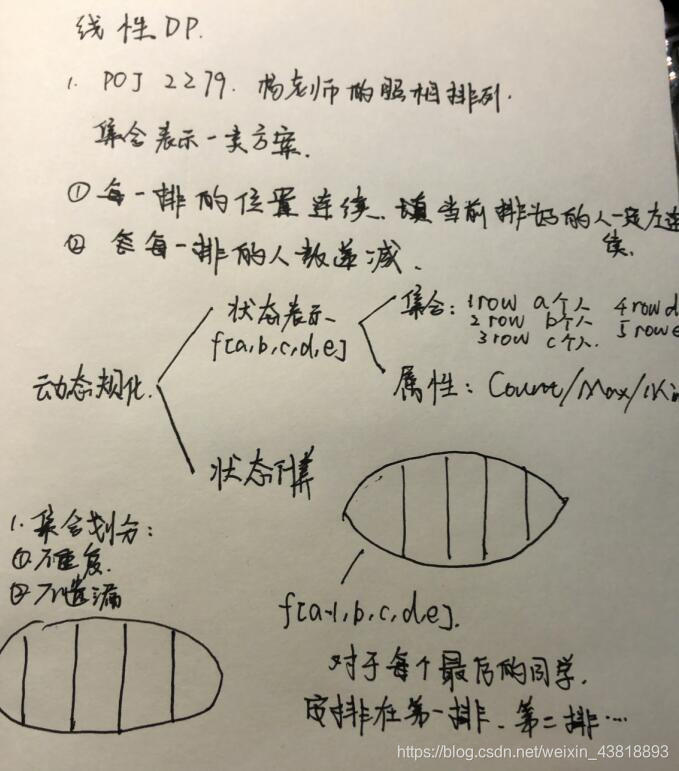 线性DP.
1. POJ 2279. 杨老师的照相排列.
集合表示一类方案.
① 每一排的位置连续. 填当前排好的人一定左连
续.
② 每一排的人数递减.
状态表示
f[a,b,c,d,e]
集合: 1 row a个人 4 row d
2 row b个人 5 row e
3 row c个人.
属性: Count/Max/Mi
动态规化.
状态计算
1. 集合划分:
① 不重复.
② 不遗漏
f[a-1,b,c,d,e].
对于每个最后的同学.
安排在第一排. 第二排...
https://blog.csdn.net/weixin_43818893